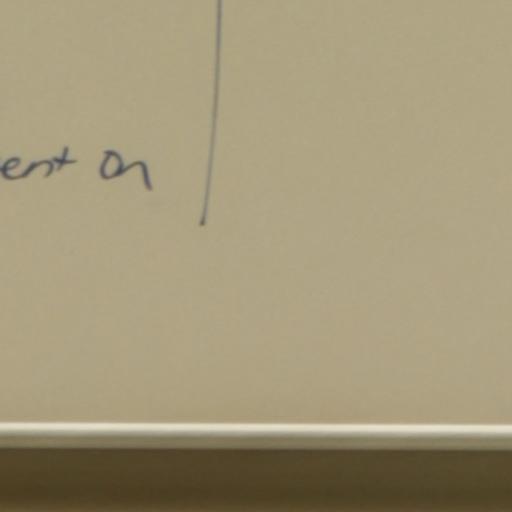 ent on